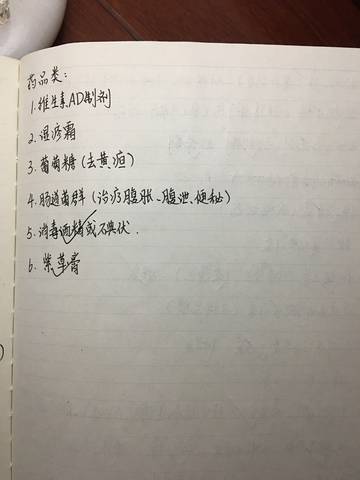 药品类:
1.维生素AD制剂
2.湿疹霜
3.葡萄糖(去黄疸)
4.肠道菌群(治疗腹胀、腹泄、便秘)
5.消毒酒精或碘伏.
6.紫草膏